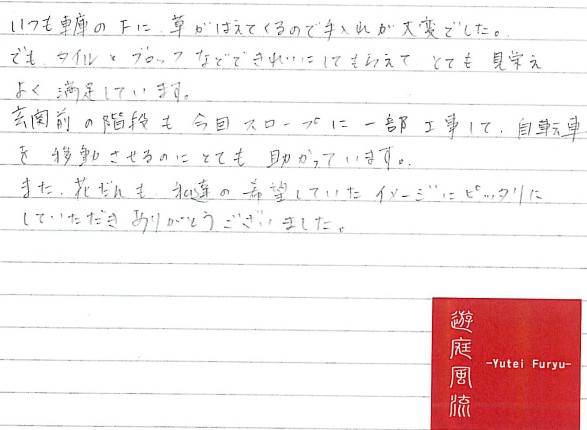 いつも車庫の下に、草がはえてくるので手入れが大変でした。
でも、タイルとブロックなどできれいにしてもらえて とても 見栄え
よく 満足しています。
玄関前の階段も 今回 スロープに 一部 工事して、自転車
を 移動させるのにとても 助かっています。
また、花だんも、私達の希望していた イメージにピッタリに
していただき ありがとうございました。
遊庭風流
-Yutei Furyu-